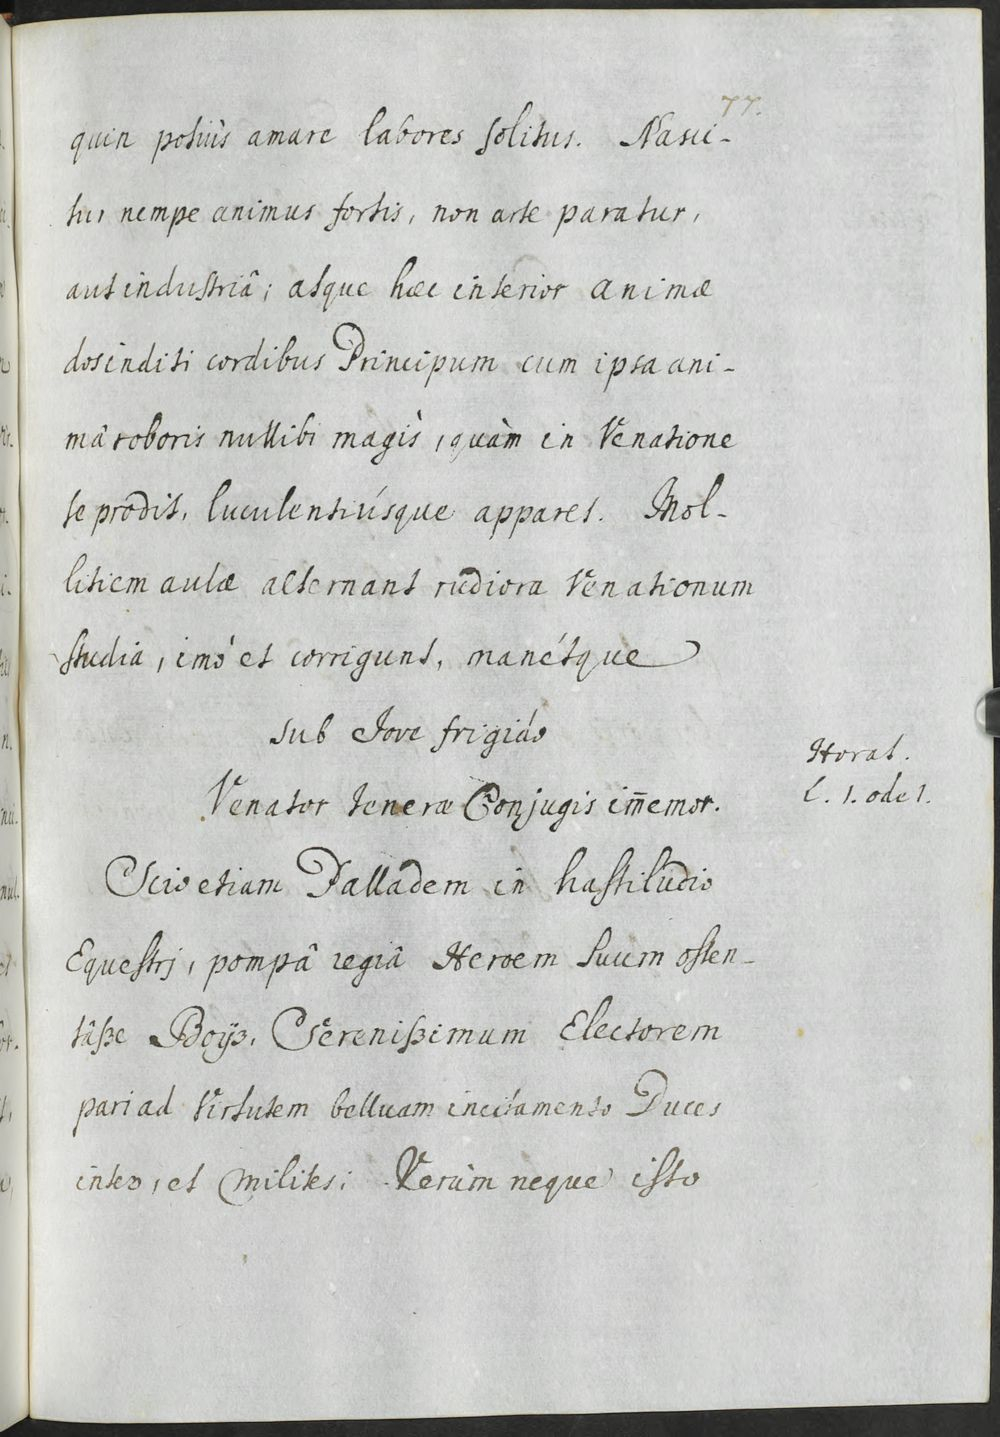 77.
quin potiùs amare labores solitus. Nasci-
tur nempe animus fortis, non arte paratur,
aut industriâ; atque hæc interior animæ
dos inditi cordibus Principum cum ipsa ani-
mâ roboris nullibi magis, quàm in Venatione
se prodit, luculentiúsque apparet. Mol-
litiem aulæ alternant rudiora Venationum
studia, imò et corrigunt, manétque
sub Jove frigido
Venator teneræ Conjugis im̄emor.
Horat.
l. 1. ode 1.
Scio etiam Palladem in hastiludio
Equestrj, pompâ regiâ Heroem suum osten-
tâße Boijs, Serenißimum Electorem
pari ad Virtutem bellicam incitamento Duces
inter, et milites; Verùm neque isto